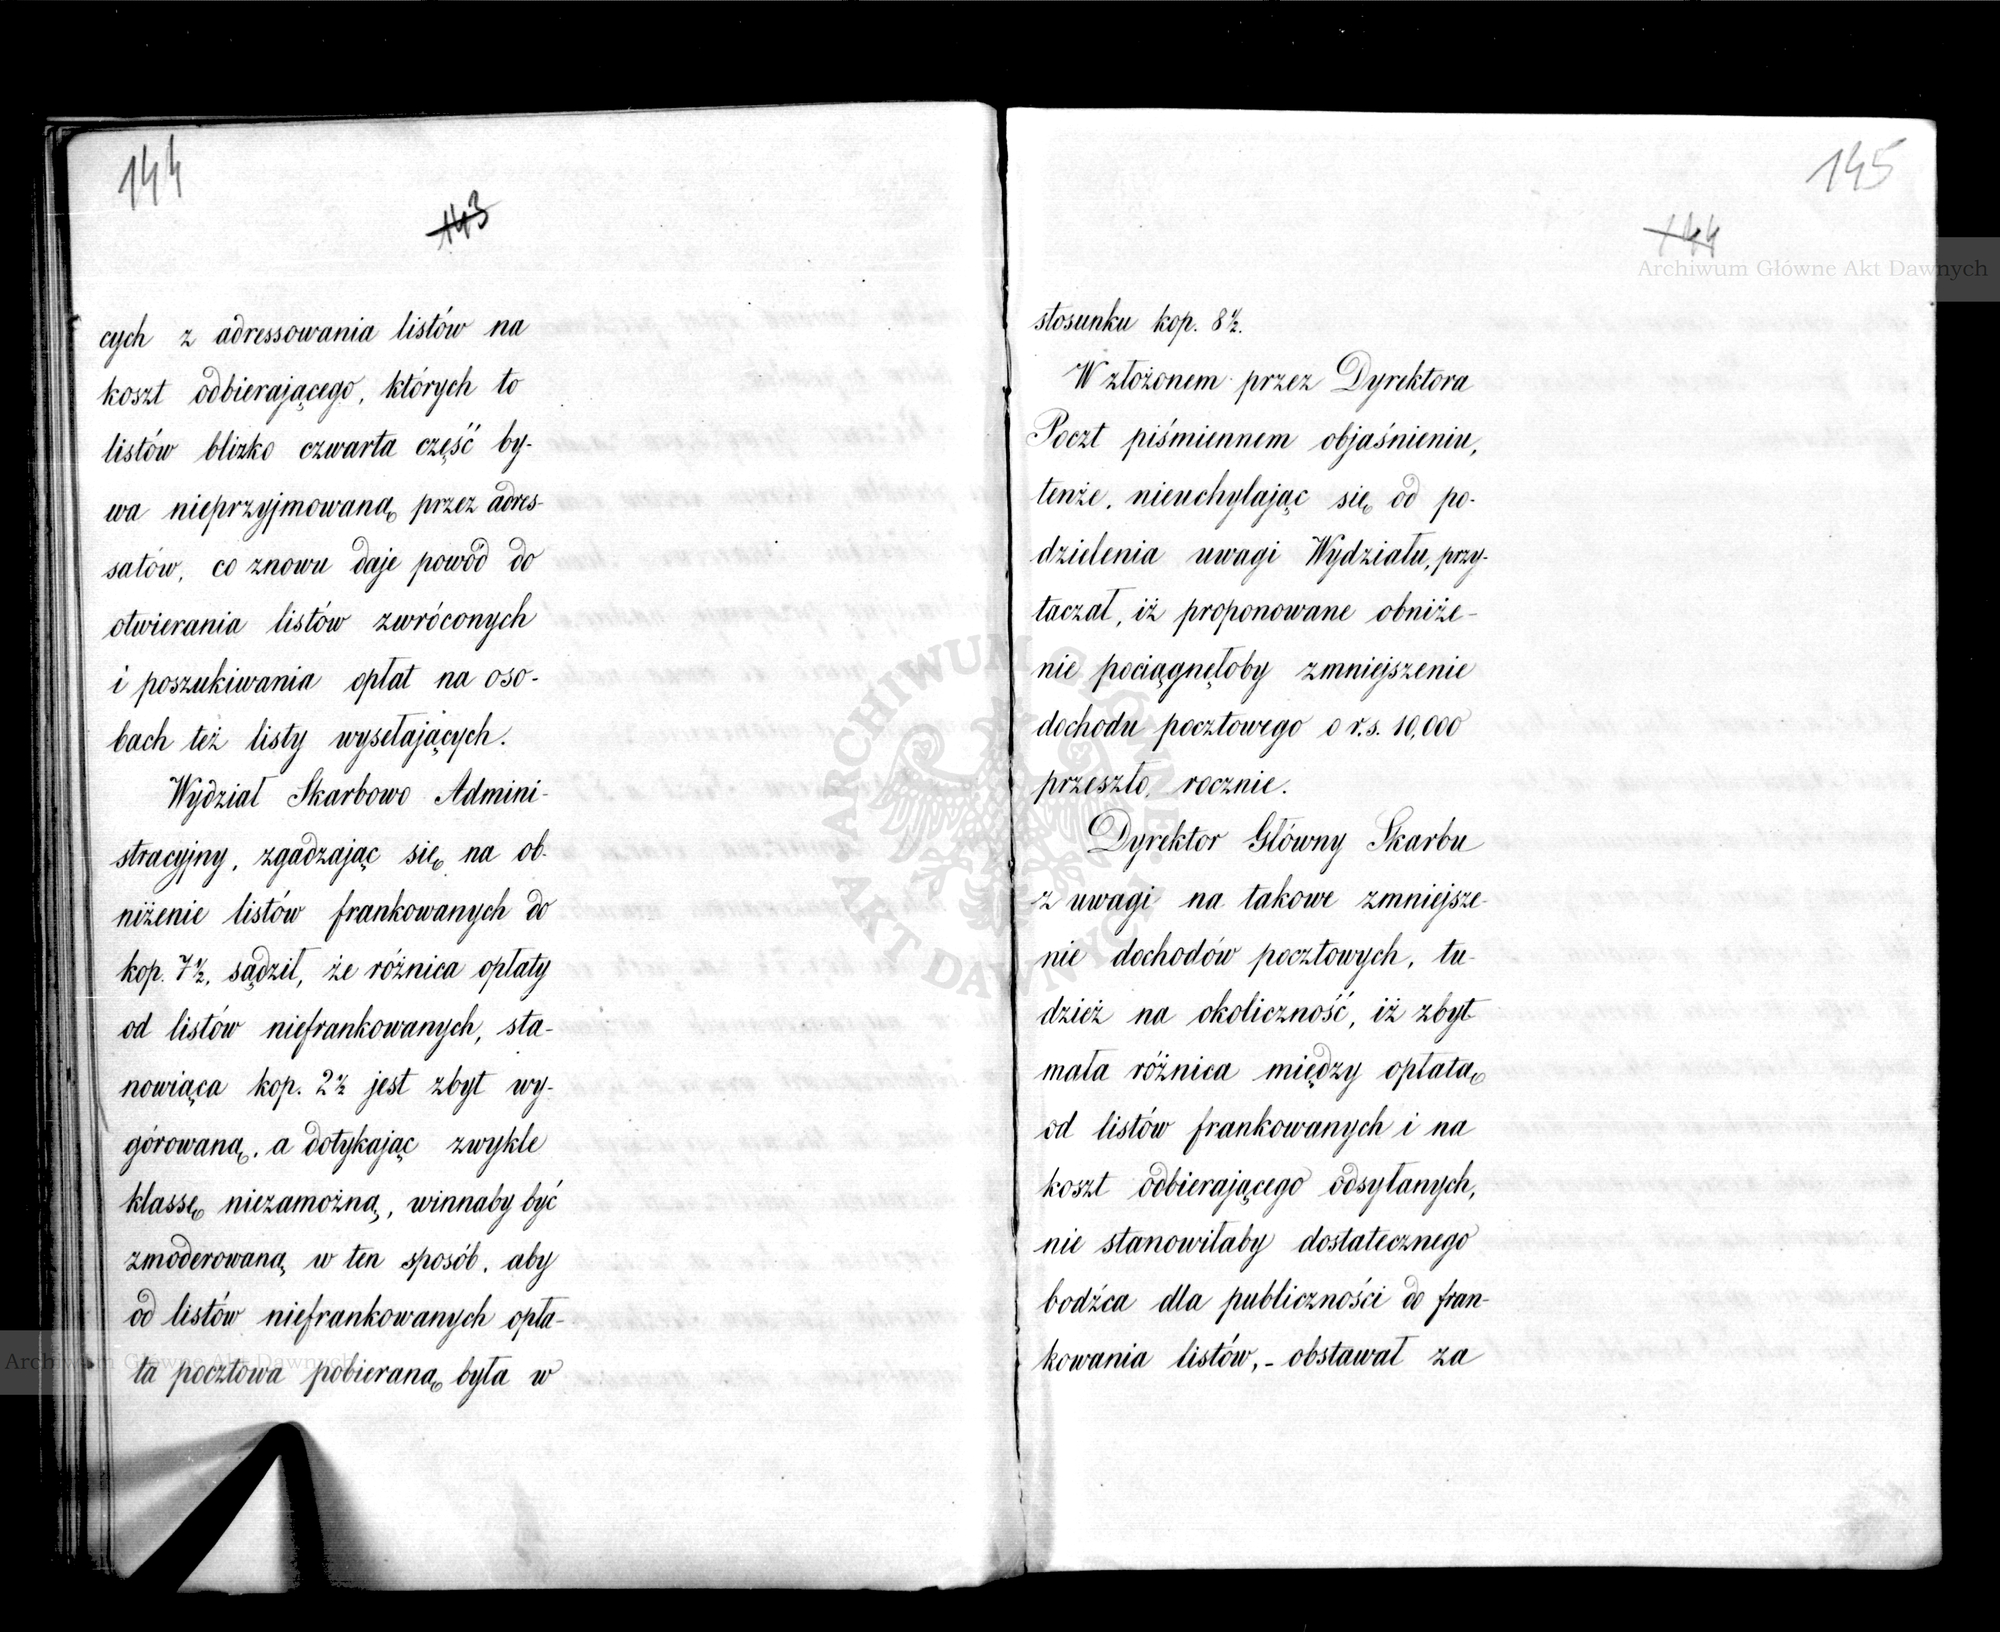 144
143
cych z adressowania listów na
koszt odbierającego, których to
listów blizko czwarta część by-
wa nieprzyjmowaną przez adres-
satów, co znowu daje powód do
otwierania listów zwróconych
i poszukiwania opłat na oso-
bach też listy wysełających.
Wydział Skarbowo Admini-
stracyjny, zgadzając się na ob-
niżenie listów frankowanych do
kop. 7½, sądził, że różnica opłaty
od listów niefrankowanych, sta-
nowiąca kop. 2½ jest zbyt wy-
górowaną, a dotykając zwykle
klassę niezamożną, winnaby być
zmoderowaną w ten sposób, aby
od listów niefrankowanych opła-
ta pocztowa pobieraną była w
145
144
Archiwum Główne Akt Dawnych
stosunku kop. 8½.
W złożonem przez Dyrektora
Poczt piśmiennem objaśnieniu,
tenże, nieuchylając się od po-
dzielenia uwagi Wydziału, przy-
taczał, iż proponowane obniże-
nie pociągnęłoby zmniejszenie
dochodu pocztowego o r.s. 10,000
przeszło, rocznie.
Dyrektor Główny Skarbu
z uwagi na takowe zmniejsze-
nie dochodów pocztowych, tu-
dzież na okoliczność, iż zbyt
mała różnica między opłatą
od listów frankowanych i na
koszt odbierającego odsyłanych,
nie stanowiłaby dostatecznego
bodźca dla publiczności do fran-
kowania listów, - obstawał za
ARCHIWUM GŁÓWNE
AKT DAWNYCH
Archiwum Główne Akt Dawnych